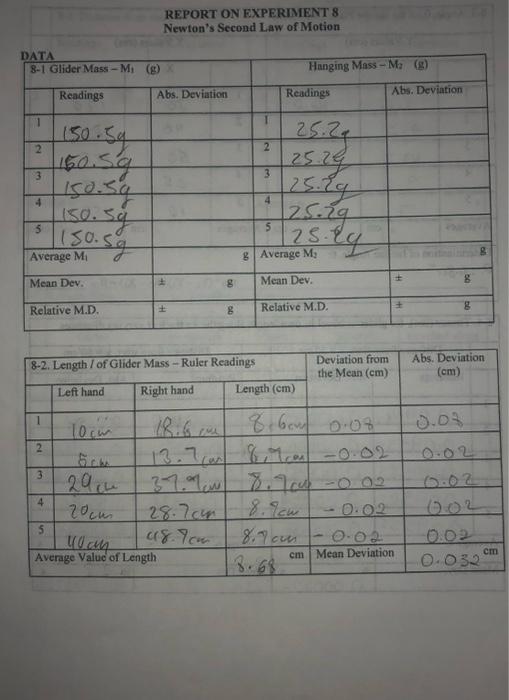 REPORT ON EXPERIMENT 8
Newton's Second Law of Motion
DATA
8-1 Glider Mass – M₁ (g) Hanging Mass – M₂ (g)
Readings Abs. Deviation Readings Abs. Deviation
1 150.5g 1 25.2g
2 150.5g 2 25.2g
3 150.5g 3 25.2g
4 150.5g 4 25.2g
5 150.5g 5 25.2g
Average M₁ g Average M₂ g
Mean Dev. ± g Mean Dev. ± g
Relative M.D. ± g Relative M.D. ± g
8-2. Length l of Glider Mass – Ruler Readings Deviation from the Mean (cm) Abs. Deviation (cm)
Left hand Right hand Length (cm)
1 10cm 18.6cm 8.6cm 0.08
2 5cm 13.7cm 8.7cm -0.02 0.02
3 8.7cm -0.02 0.02
4 20cm 28.7cm 8.7cm -0.02 0.02
5 40cm 48.7cm 8.7cm -0.02 0.02
Average Value of Length 8.68 cm Mean Deviation 0.032 cm